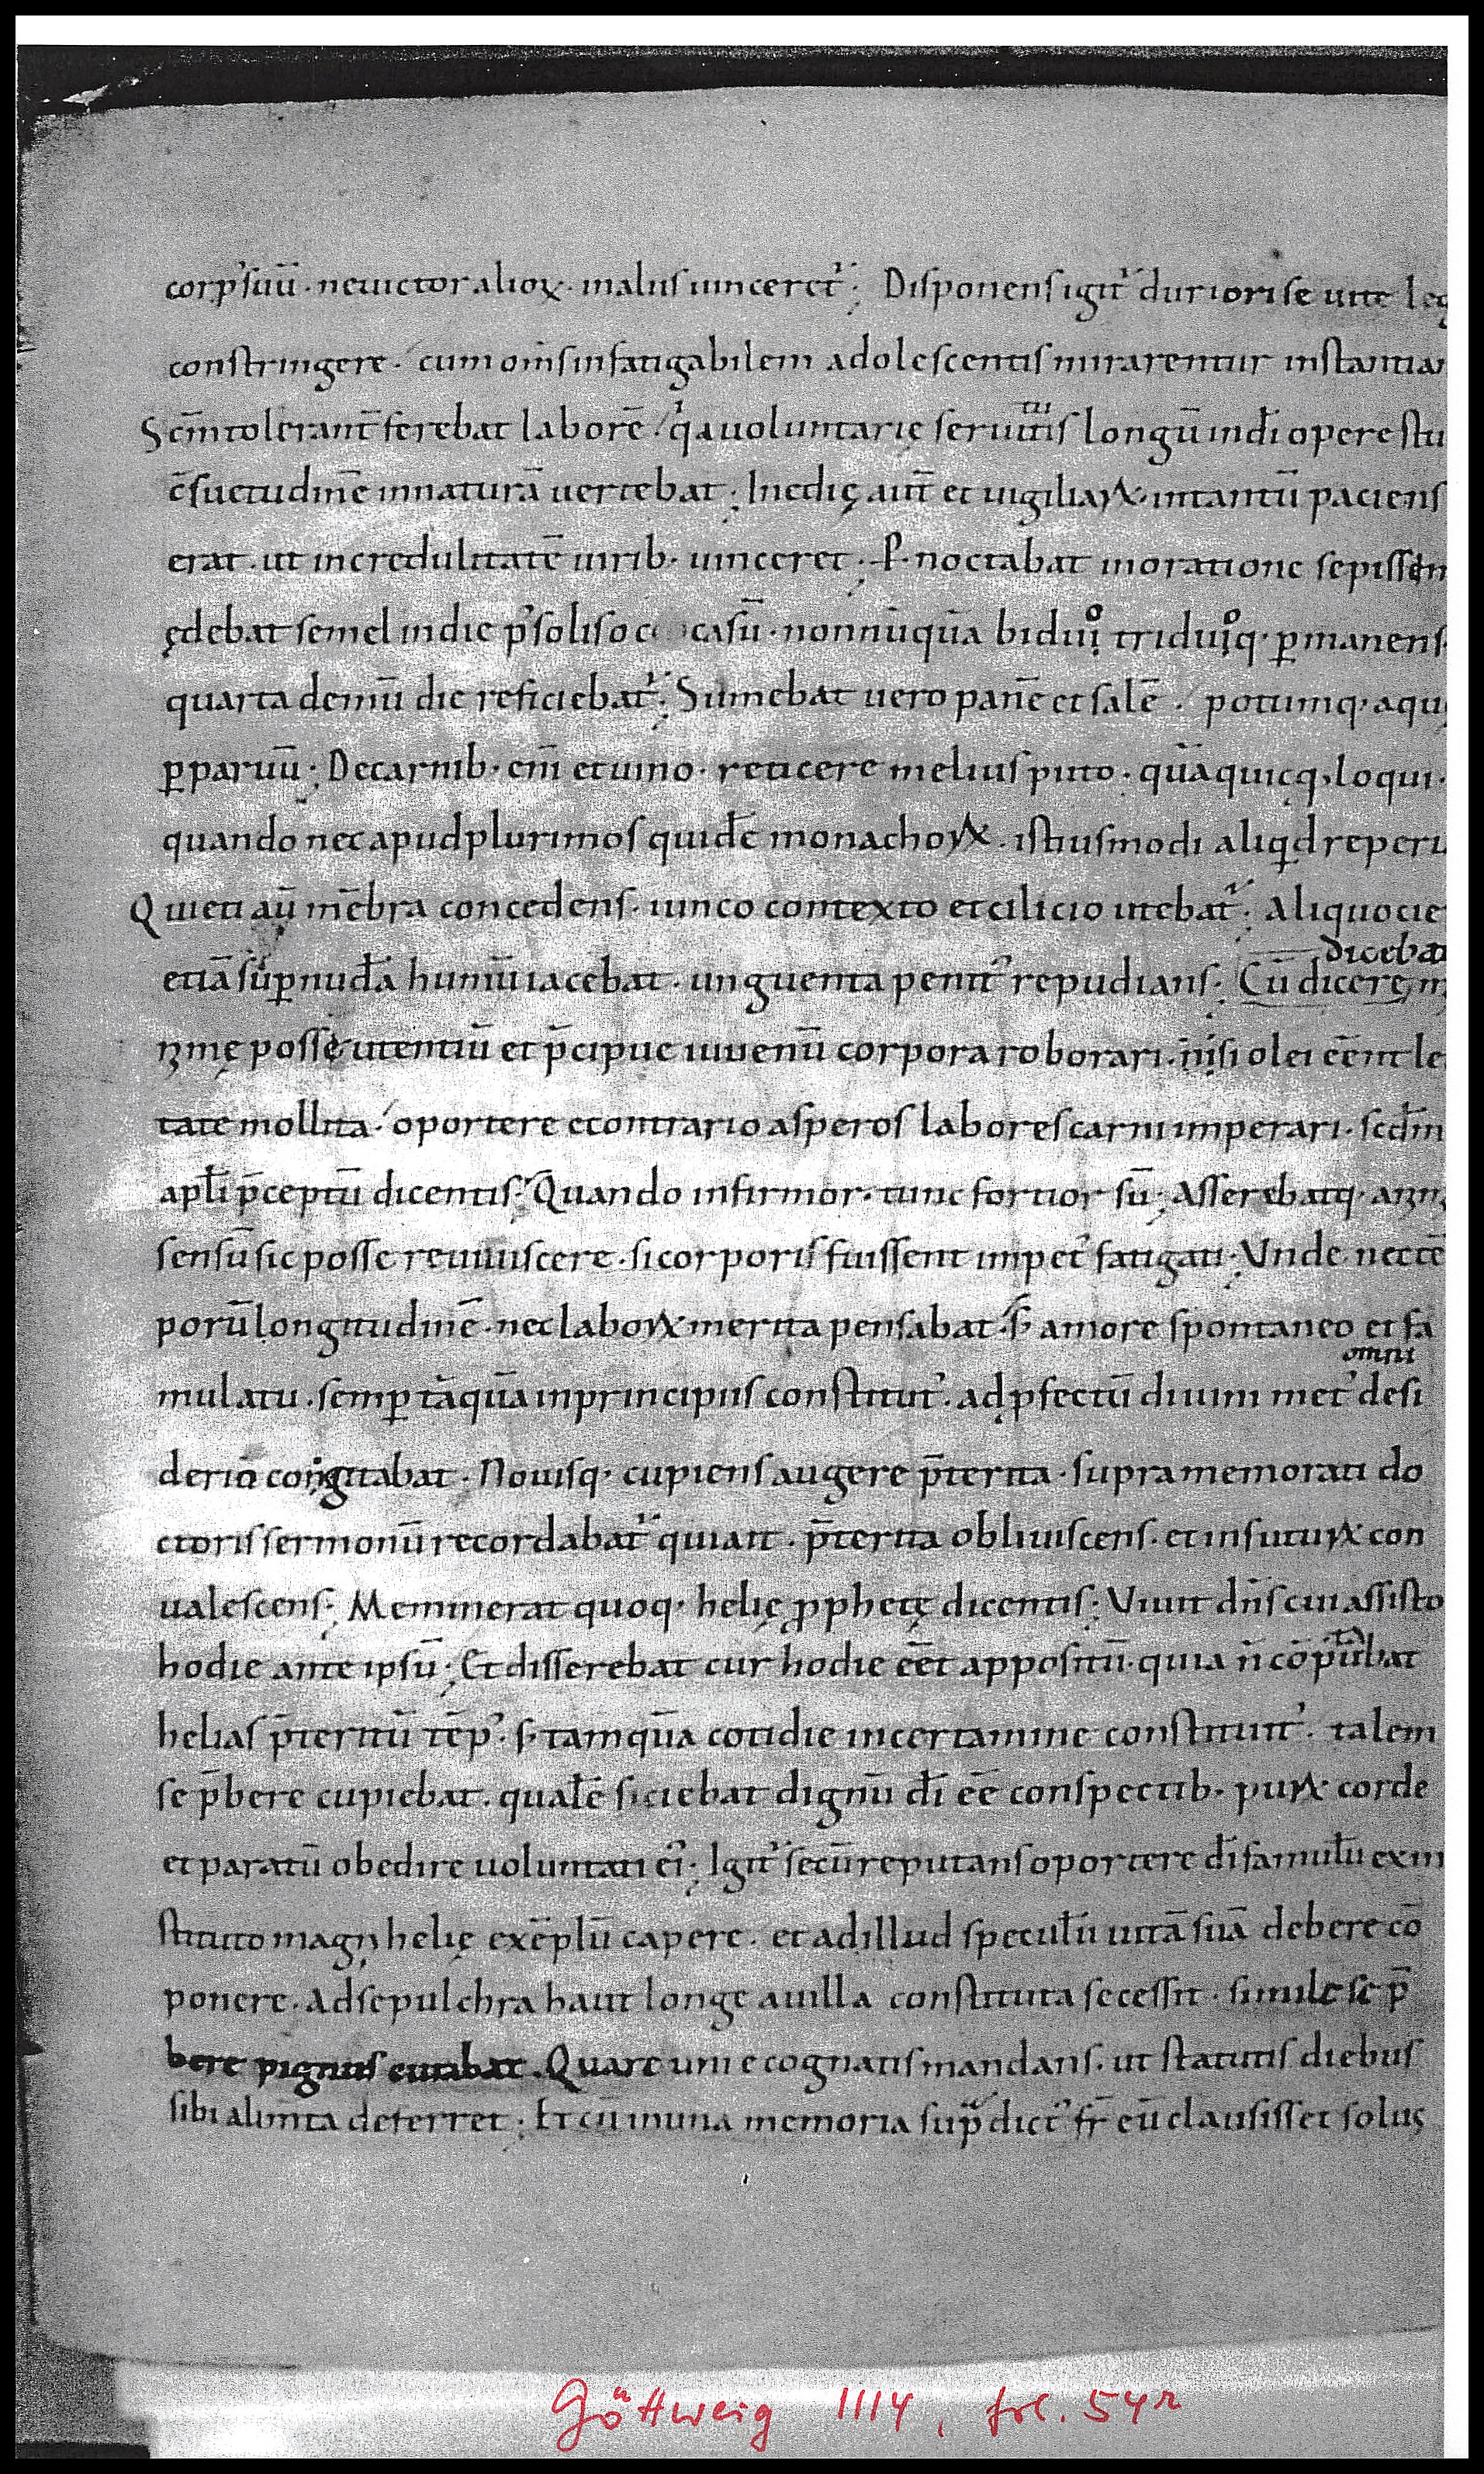 corpꝰ suū · ne uictor alioꝝ · malus uinceretᷣ ; Disponens igitᷣ duriori se uite leg
constringere · cum om̄s infatigabilem adolescentis mirarentur instantiam
Scm̄ tolerant̄ ferebat laborē · qͥa uoluntarię seruitutis longū in dī opere stu
c̄suetudinē in naturā uertebat ; Inedię aut̄ et uigiliaꝝ · in tantū paciens
erat · ut incredulitatē uirib· uinceret ; P·noctabat in oratione sepissem
ędebat semel in die pꝰ solis occasū · nonnūquā biduo triduoq· ꝑmanens ·
quarta demū die reficiebatᷣ ; Sumebat uero panē et salē · potumq· aquę
ꝑparuū ; De carnib· em̄ et uino · reticere melius puto · quā quicq, loqui ·
quando nec apud plurimos quidē monachoꝝ · istiusmodi aliqͥd reperi
Quieti aū mēbra concedens · iunco contexto et cilicio utebatᷣ ; Aliquocie
diceba
etiā sup̱ nudā humū iacebat · unguenta penitꝰ repudians ; Cū dicere, m
nimę posse utentiū et p̄cipue iuuenū corpora roborari · nisi olei eēnt le
tate mollita · oportere econtrario asperos labores carni imperari · scdm̄
apłi p̄ceptū dicentis ; Quando infirmor · tunc fortior sū ; Asserebatq· anim
sensū sic posse reuiuiscere · si corporis fuissent impetꝰ fatigati ; Vnde nec tē
porū longitudinē · nec laboꝝ merita pensabat · s· amore spontaneo et fa
omni
mulatu · semꝑ tāquā in principiis constitutꝰ · ad ꝓfectū diuini metꝰ desi
derio congitabat · Nouisq· cupiens augere p̄terita · supra memorati do
ctoris sermonū recordabatᷣ qui ait · p̄terita obliuiscens · et in futuꝝ con
ualescens ; Meminerat quoq· helię ꝓphetę dicentis ; Viuit dn̄s cui assisto
hodie ante ipsū ; Et disserebat cur hodie eēt appositū · quia n̄ cōputabat
helias p̄teritū tēpꝰ · s· tamquā cotidie in certamine constituitꝰ · talem
se p̄bere cupiebat · qualē sciebat dignū dī eē conspectib· puꝝ corde
et paratū obedire uoluntati eiꝰ ; Igitᷣ secū reputans oportere dī famulū ex in
stituto magni helię exēplū capere · et ad illud speculū uitā suā debere cō
ponere · Ad sepulchra haut longe a uilla constituta secessit · simile se p̄
bere pignus curabat · Quare uni e cognatis mandans · ut statutis diebus
sibi alim̄ta deferret ; Et cū in una memoria supᷓdictꝰ fr̄ eū clausisset solus
Göttweig 1114, fol. 54r